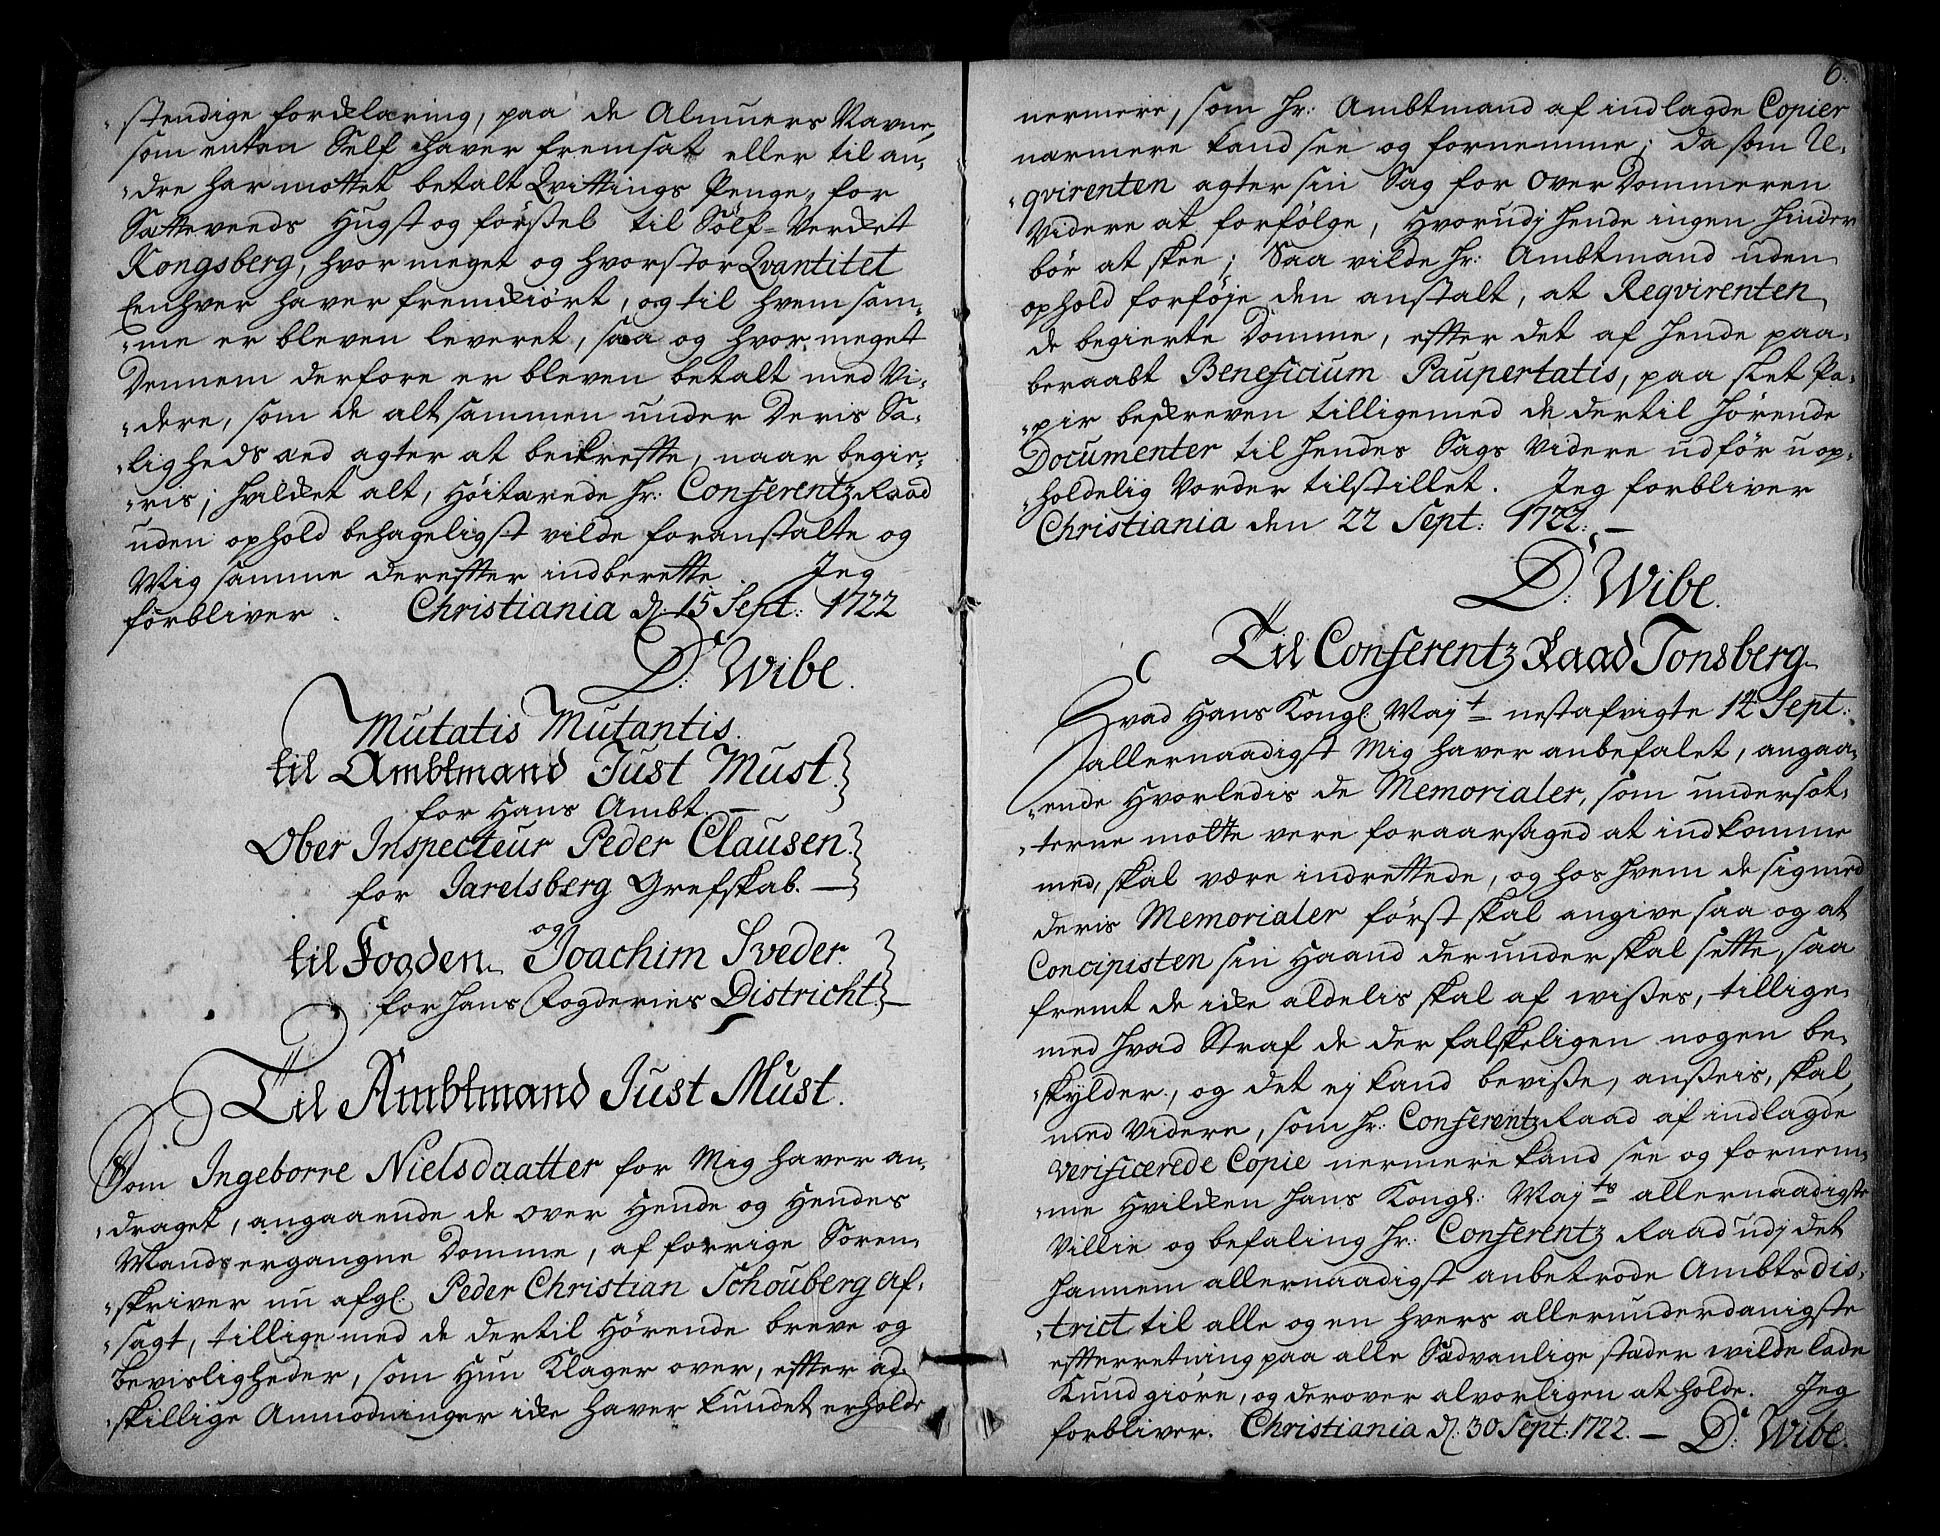 stendige forklaring, paa de Almuers Navne,
som enten Self haver fremsat eller til an-
dre har mottet betalt Qvittings Penge, for
Sætteveeds Hugst og förssel til Sölf-Verket
Kongsberg, hvor meget og hvor stor Qvantitet
Eenhver haver fremkiört, og til hvem sam-
me er bleven leveret, saa og hvor meget
Dennem derfore er bleven betalt med Vi-
dere, som de alt sammen under Deris Sa-
ligheds æd agter at bekrefte, naar begie-
ris; hvilket alt, Höitærede Hr: Conferentz Raad
uden ophold behageligst vilde foranstalte og
Mig samme derefter indberette. Jeg
forbliver. Christiania d. 15 Sept: 1722
D: Wibe.
Mutatis Mutantis.
til Ambtmand Just Must.
for Hans Ambt. —
Ober Inspecteur Peder Clausen.
for Jarelsberg Grefskab. —
og
til Fogden Joachim Sveder.
for hans Fogderies District —
Til Ambtmand Just Must.
Som Ingeborre Nielsdaatter for Mig haver an-
draget, angaaende de over Hende og Hendes
Mands ergangne Domme, af forrige Soren-
skriver nu afgl. Peder Christian Schouberg af-
sagt, tillige med de dertil Hörende breve og
bevisligheder, som Hun Klager over, efter ad-
skillige Anmodninger ike haver kundet erholde
6.
nermere, som Hr: Ambtmand af indlagde Copier
nærmere kand see og fornemme; da som Re-
qvirenten agter sin Sag for Over Dommeren
Videre at forfölge, Hvorudj Hende ingen Hinder
bör at skee; Saa vilde Hr: Ambtmand uden
ophold forföje den anstalt, at Reqvirenten
de begierte Domme, efter det af Hende paa-
beraabt Beneficium Paupertatis, paa slet Pa-
pir beskreven tilligemed de dertil Hörende
Documenter til Hendes Sags Videre udför uop-
holdelig Vorder tilstillet. Jeg forbliver
Christiania den 22 Sept: 1722. —
D: Wibe.
Til Conferentz Raad Tonsberg
Hvad Hans Kongl. Mayt nestafvigte 14 Sept:
allernaadigst Mig haver anbefalet, angaa-
ende Hvorledis de Memorialer, som undersot-
terne motte vere foraarsaged at indkomme
med, skal være indrettede, og hos hvem de sig med
deris Memorialer först skal angive saa og at
Concipisten sin Haand derunder skal sette, saa
fremt de ike aldelis skal af wisses, tillige-
med Hvad Straf de der falskeligen nogen be-
skylder, og det ej kand bevisse, ansseis, skal,
med Videre, som Hr: Conferentz Raad af indlagde
Verificerede Copie nermere kand see og fornem-
me Hvilken Hans Kongl: Mayts allernaadigste
Villie og befaling Hr: Conferentz Raad udj det
hannem allernaadigst anbetrode Ambts dis-
trict til alle og en hvers allerunderdanigste
efterretning paa alle Sædvanlige stæder wilde lade
Kundgiöre, og derover alvorligen at holde. Jeg
forbliver. Christiania d. 30 Sept: 1722. — D: Wibe.